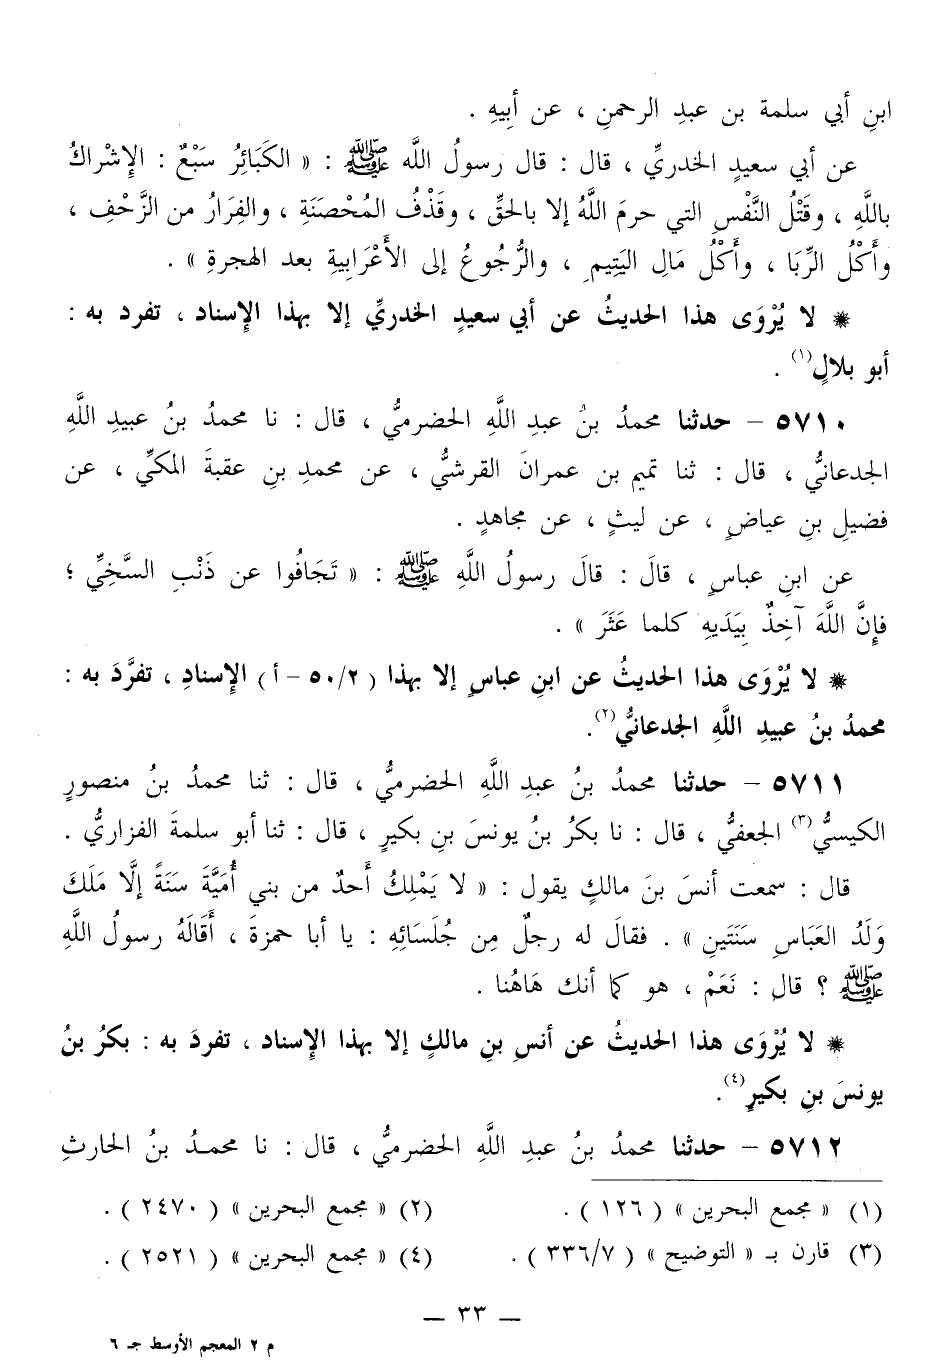 ابنِ أبي سلمة بن عبدِ الرحمنِ ، عن أبِيهِ .
عن أبي سعيدٍ الخدريِّ ، قال : قال رسولُ اللَّه ﷺ : « الكَبَائِرُ سَبْعٌ : الإِشْراكُ
باللَّهِ ، وقَتْلُ النَّفْسِ التي حرمَ اللَّهُ إلا بالحقِّ ، وقَذْفُ المُحْصَنَةِ ، والفِرَارُ من الزَّحْفِ ،
وأَكْلُ الرِّبَا ، وأَكْلُ مَالِ اليَتِيمِ ، والرُّجُوعُ إلى الأَعْرَابِيةِ بعد الهجرةِ » .
* لا يُرْوَى هذا الحديثُ عن أبي سعيدٍ الخدريِّ إلا بهذا الإِسناد ، تفرد به :
أبو بلالٍ(١) .
٥٧١٠ – حدثنا محمدُ بنُ عبدِ اللَّهِ الحضرميُّ ، قال : نا محمدُ بنُ عبيدِ اللَّهِ
الجدعانيُّ ، قال : ثنا تميم بن عمرانَ القرشيُّ ، عن محمدِ بنِ عقبةَ المكيِّ ، عن
فضيلِ بنِ عياضٍ ، عن ليثٍ ، عن مجاهدٍ .
عن ابنِ عباسٍ ، قالَ : قالَ رسولُ اللَّهِ ﷺ : « تَجَافُوا عن ذَنْبِ السَّخِيِّ ؛
فإِنَّ اللَّهَ آخِذٌ بِيَدَيهِ كلما عَثَرَ » .
* لا يُرْوَى هذا الحديثُ عن ابنِ عباسٍ إلا بهذا ( ٢/ ٥٠ – أ ) الإِسنادِ ، تفرَّدَ به :
محمدُ بنُ عبيدِ اللَّهِ الجدعانيُّ(٢).
٥٧١١ – حدثنا محمدُ بنُ عبدِ اللَّهِ الحضرميُّ ، قال : ثنا محمدُ بنُ منصورٍ
الكيسيُّ(٣) الجعفيُّ ، قال : نا بكرُ بنُ يونسَ بنِ بكيرٍ ، قال : ثنا أبو سلمةَ الفزاريُّ .
قال : سمعت أنسَ بنَ مالكٍ يقول : « لا يَمْلِكُ أَحدٌ من بني أُمَيَّةَ سَنَةً إلَّا مَلَكَ
وَلَدُ العَبَاسِ سَنَتَينِ » . فقالَ له رجلٌ مِن جُلَسَائِهِ : يا أبا حمزةَ ، أَقَالَهُ رسولُ اللَّهِ
ﷺ ؟ قال : نَعَمْ ، هو كما أنك هَاهُنا .
* لا يُرْوَى هذا الحديثُ عن أنسِ بنِ مالكٍ إلا بهذا الإِسناد ، تفردَ به : بكرُ بنُ
يونسَ بنِ بكيرٍ(٤).
٥٧١٢ – حدثنا محمدُ بنُ عبدِ اللَّهِ الحضرميُّ ، قال : نا محمدُ بنُ الحارثِ
(١) « مجمع البحرين » ( ١٢٦ ) . (٢) « مجمع البحرين » ( ٢٤٧٠ ) .
(٣) قارن بـ « التوضيح » ( ٧/ ٣٣٦ ) . (٤) « مجمع البحرين » ( ٢٥٢١ ) .
— ٣٣ —
م ٢ المعجم الأوسط جـ ٦